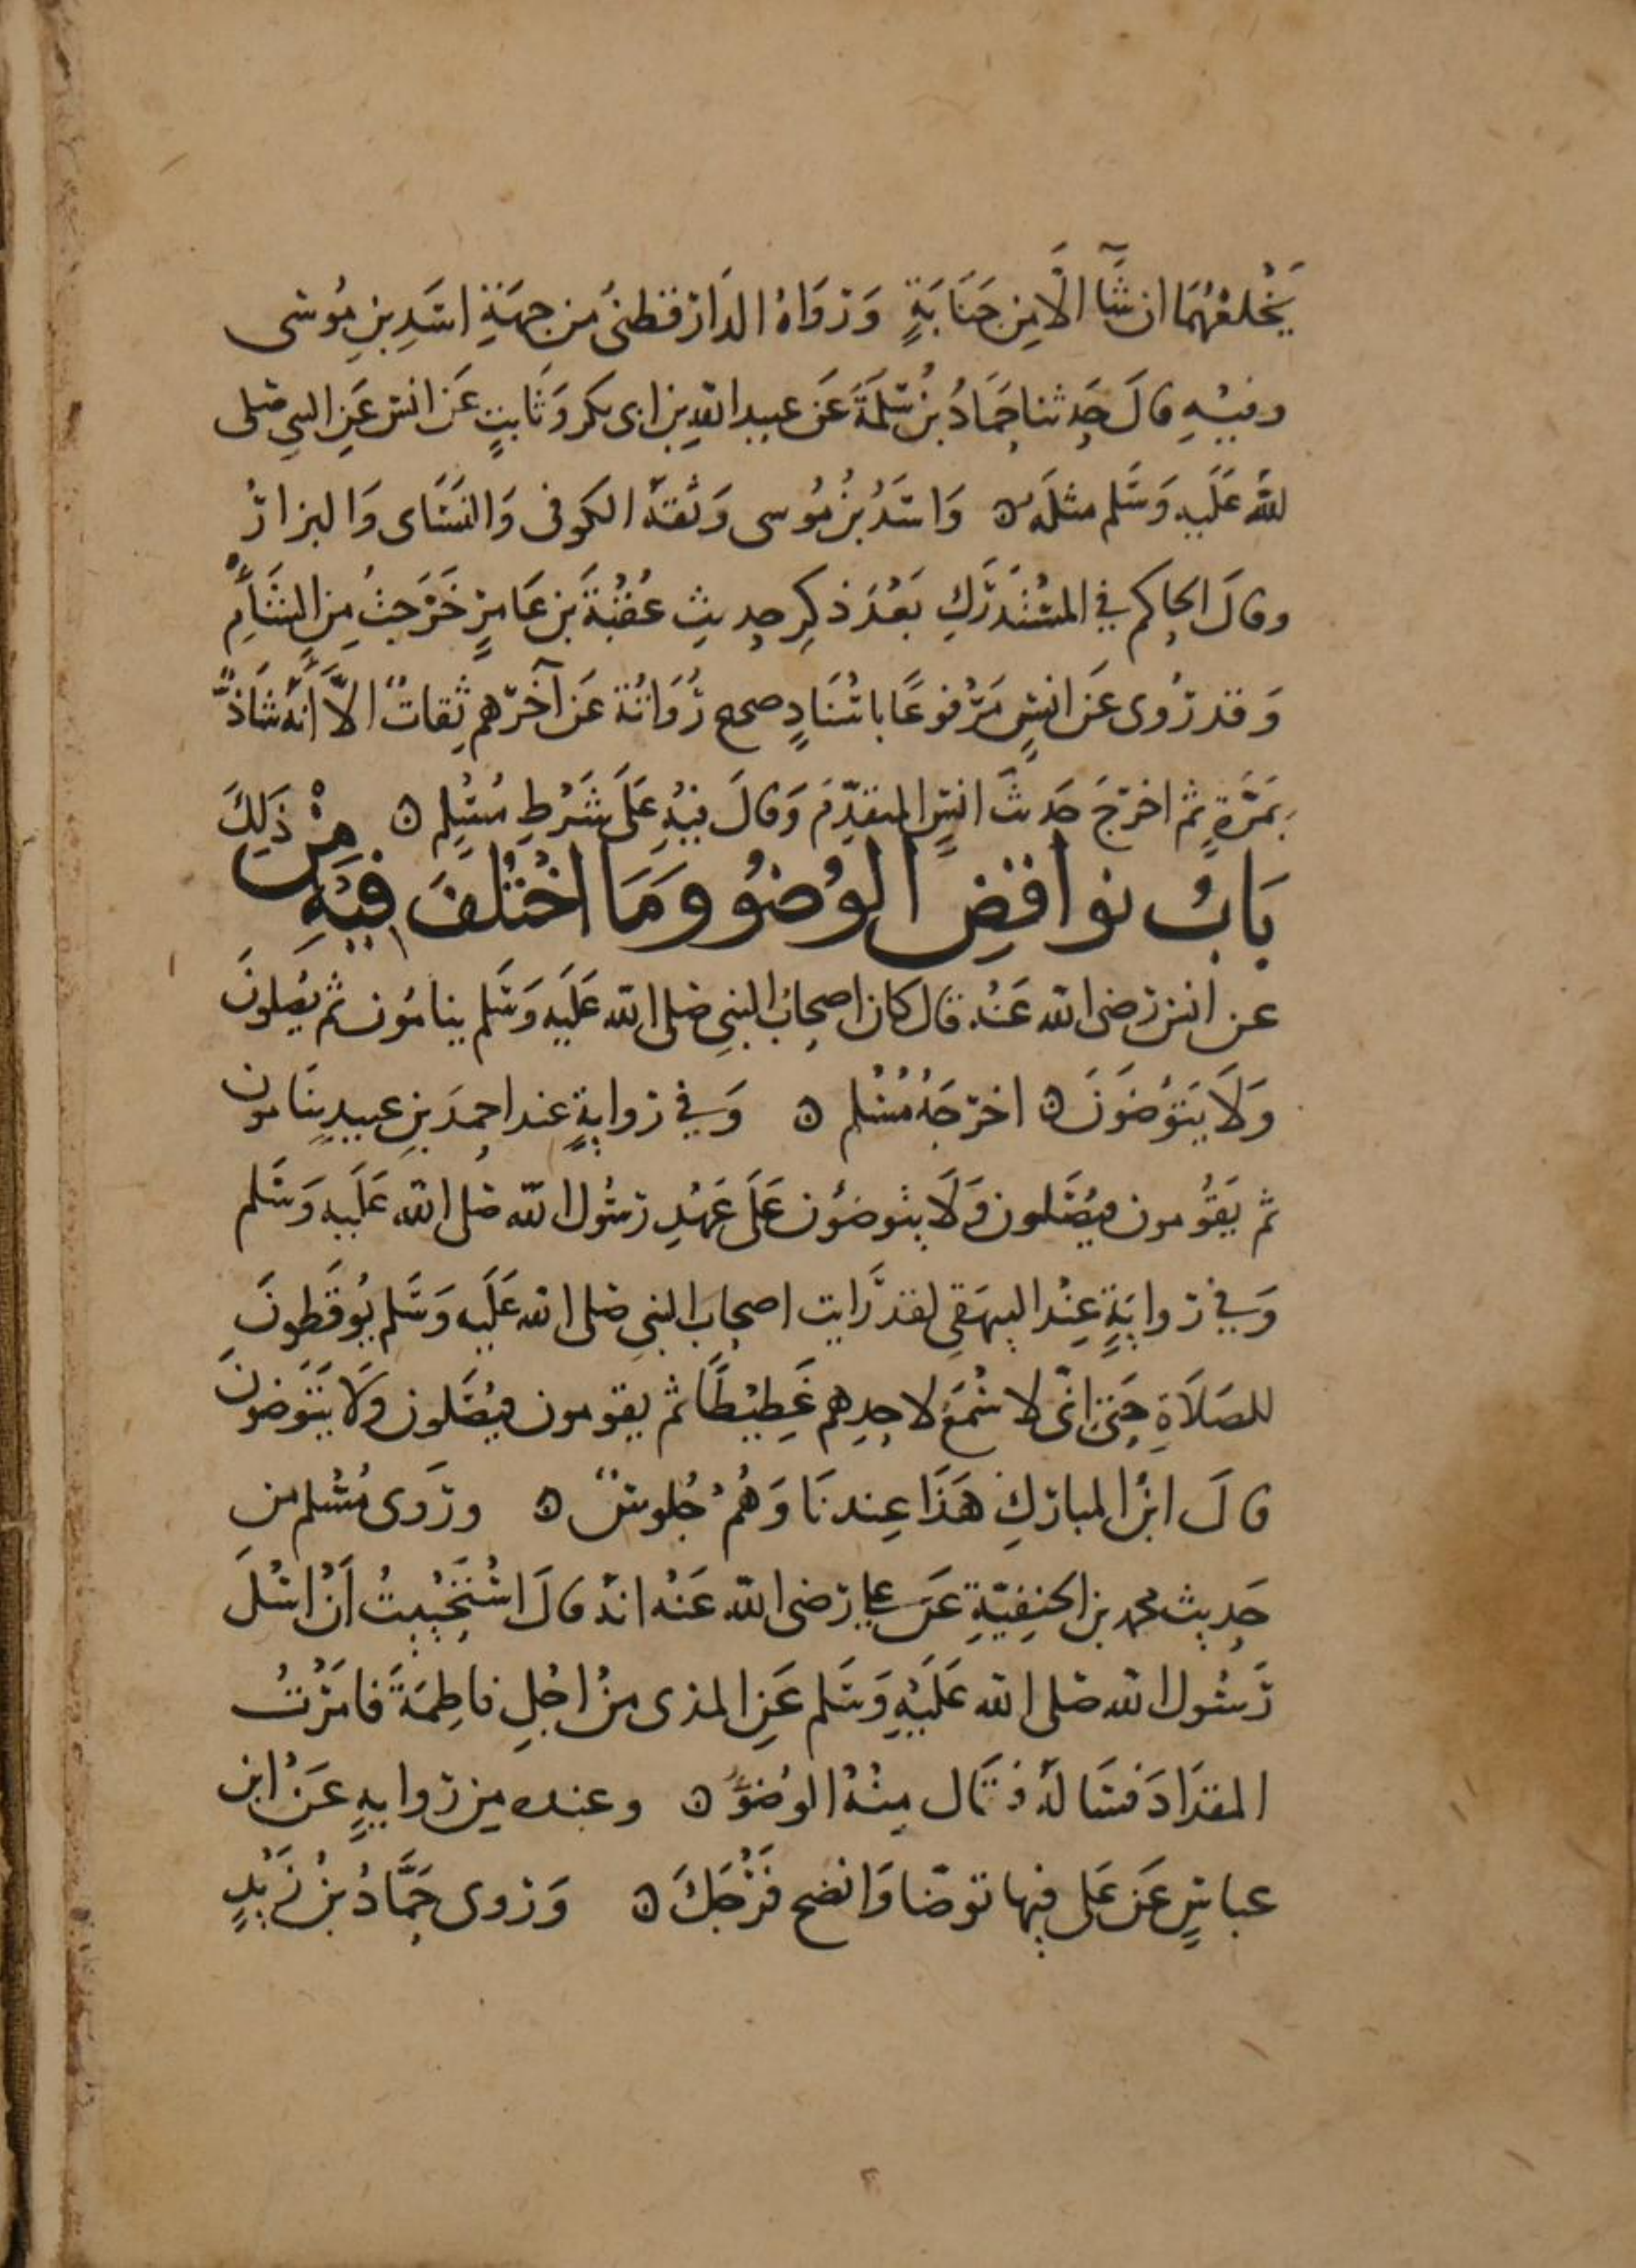 يَخْلَعْهُمَا ان شَآ الَّا مِن جَنَابَةٍ وَرَوَاهُ الدَارقطنى مِن جِهَةِ اسَدِ بنِ مُوسَى
وفيْهِ قالَ حَدثنا حَمَادُ بنُ سَلَمَةَ عَن عبيد اللهِ بن ابى بكر وَثَابتٍ عَن انس عَنِ النبيِ صَلى
للهُ عَلَيهِ وَسَلم مثلَهُ ن وَاسَدُ بنُ مُوسى وَثقهُ الكوفى وَالنسَاى وَالبزارُ
وقالَ الحاكم في المسْتَدرَكِ بَعْدَ ذكِر حديثِ عُقْبَةَ بن عَامِرٍ خَرَجتُ مِن الشَأمِ
وَقد رُوى عَن انسٍ مَرْفوعًا باسْنَادٍ صحيح رُوَاتُهُ عَن آخرهم ثِقاتٌ الاَّ أَنهُ شَاذٌ
بمَرَةٍ ثم اخرَجَ حَديثَ انسٍ المتقدِّمَ وَقالَ فيْهِ عَلَى شَرْطِ مُسْلِم ن
بَابُ نوَاقضِ الوُضوُ وَمَا اخْتُلفَ فيْهِ مِنْ ذَلِكَ
عن انس رَضى الله عَنْهُ قال كان اصحابُ النبيِ صَلى الله عَلَيهِ وَسَلم ينامُون ثم يصَلونَ
وَلَا يَتَوَضوُنَ ن اخرَجَهُ مُسْلم ن وَفي رواِيةٍ عند احمدَ بنِ عبيدٍ يَنَامون
ثم يَقُومون فيصَلون وَلَا يتوضوُن عَلَى عَهْدِ رَسُول الله صَلى الله عَلَيهِ وَسَلم
وَفي روايَةٍ عِنْد البيهَقىِ لقد رَايت اصحاب النبي صلى الله عَلَيهِ وَسَلم يُوقَظونَ
للصَلَاةِ حَتى انّى لا سْمَعَ لاحدِهم غَطِيْطًا ثم يقومون فيصَلون وَلَا يَتَوَضوُن
قالَ ابنُ المبارَكِ هَذَا عِندنَا وَهُمْ جُلوسٌ ن وروَى مُسْلم مِن
حَديث محمد بن الحنفِيّةِ عَن على رَضى الله عَنْهُ انهُ قالَ اسْتَحْيَيْتُ أَنْ اسْلَ
رَسُول الله صَلى الله عَلَيْهِ وَسَلم عَنِ المذى مِنْ اجْلِ فاطِمَةَ فامَرْتُ
المقدَادَ فسَالهُ فقال مِنْهُ الوُضوُ ن وعنده مِن روايهِ عَنْ ابن
عباسٍ عَن عَلى فيها توضا وَانضح فَرْجَكَ ن وَروى حَمَّادُ بنُ زَيْدٍ